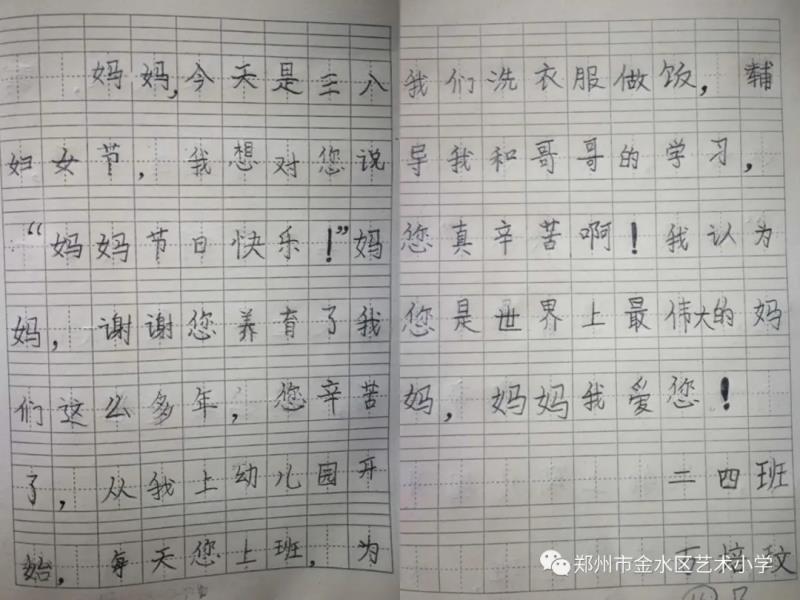 妈妈,今天是三八
妇女节，我想对您说
“妈妈节日快乐！”妈
妈，谢谢您养育了我
们这么多年，您辛苦
了，从我上幼儿园开
始，每天您上班，为
我们洗衣服做饭，辅
导我和哥哥的学习，
您真辛苦啊！我认为
您是世界上最伟大的妈
妈，妈妈我爱您！
二四班
郑州市金水区艺术小学